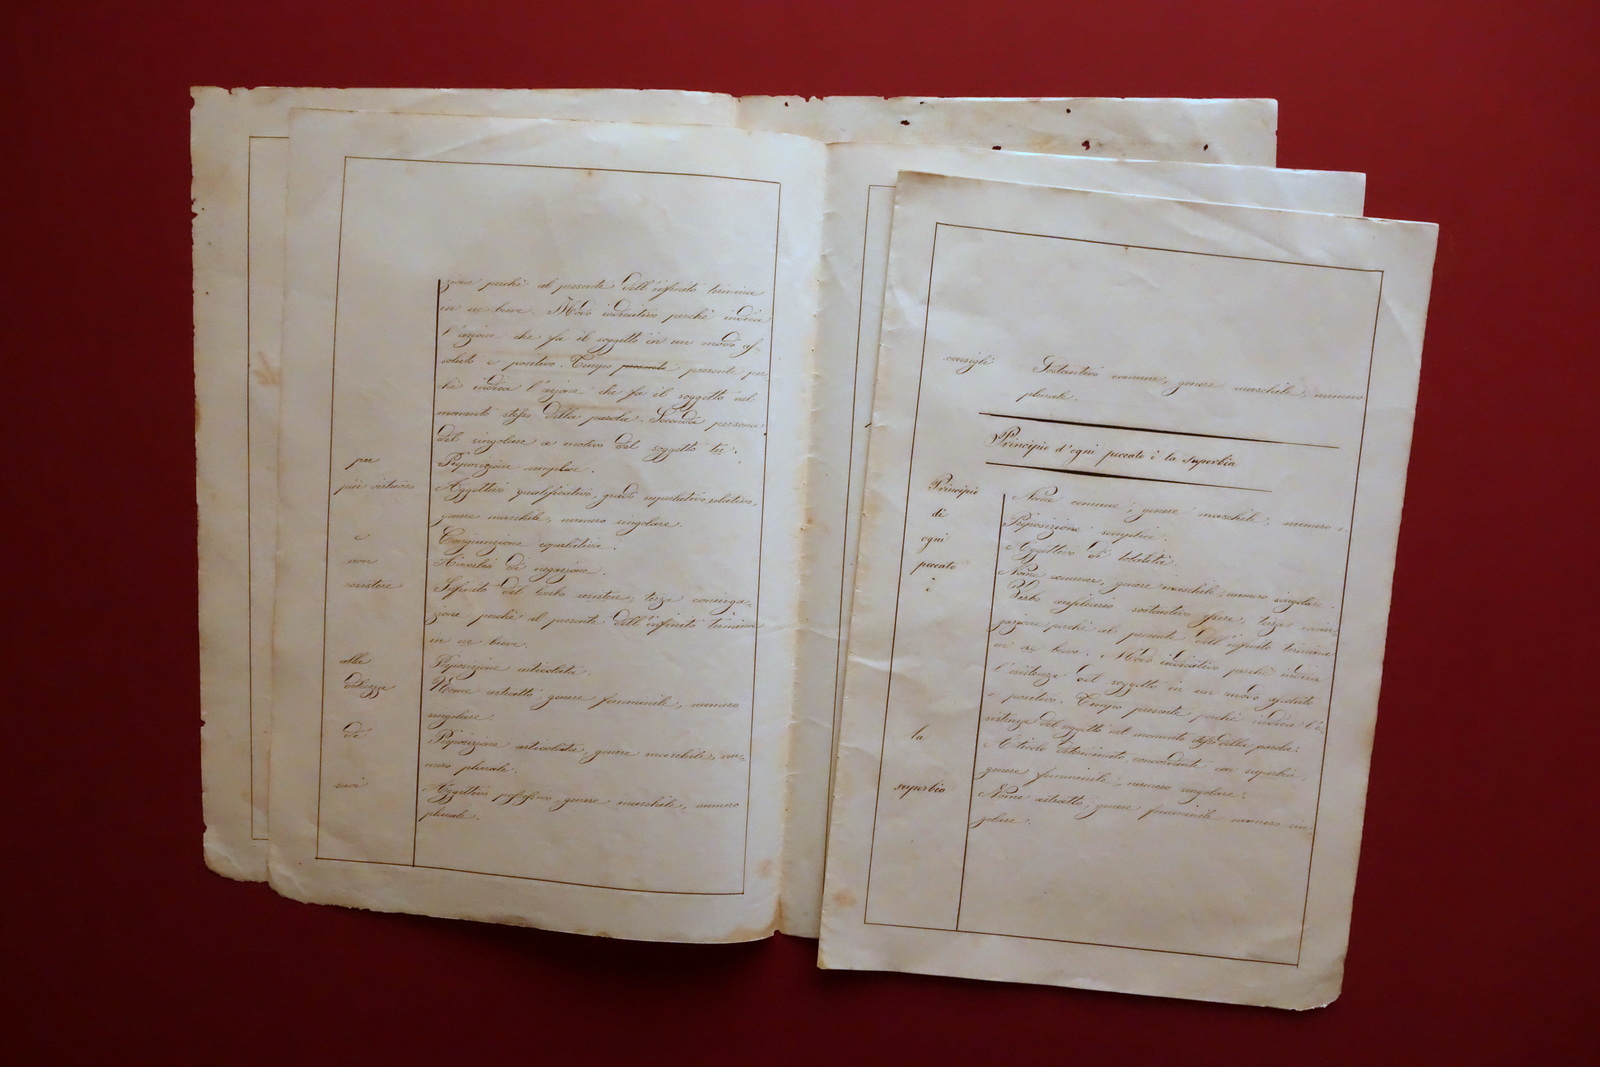 zione perchè al presente dell'infinito termina
in ere breve. Modo indicativo perchè indica
l'azione che fa il soggetto in un modo as-
soluto e positivo. Tempo presente per-
chè indica l'azione che fa il soggetto nel
momento stesso della parola. Seconda persona
del singolare a motivo del soggetto tu.
per Preposizione semplice.
più virtuoso Aggettivo qualificativo, grado superlativo relativo,
genere maschile, numero singolare.
e Congiunzione copulativa.
non Avverbio di negazione.
resistere Infinito del verbo resistere, terza coniuga-
zione perchè al presente dell'infinito termina
in ere breve.
alla Preposizione articolata.
dolcezza Nome astratto, genere femminile, numero
singolare.
dei Preposizione articolata, genere maschile, nu-
mero plurale.
suoi Aggettivo possessivo, genere maschile, numero
plurale.
consigli Sostantivo comune, genere maschile, numero
plurale.
Principio d'ogni peccato è la superbia
Principio Nome comune, genere maschile, numero s.
di Preposizione semplice.
ogni Aggettivo di totalità.
peccato Nome comune, genere maschile, numero singolare.
è Verbo ausiliario sostantivo essere, terza coniu-
gazione perchè al presente dell'infinito termina
in ere breve. Modo indicativo perchè indica
l'esistenza del soggetto in un modo assoluto
e positivo. Tempo presente perchè indica l'e-
sistenza del soggetto nel momento stesso della parola.
la Articolo determinato, concordante con superbia,
genere femminile, numero singolare.
superbia Nome astratto, genere femminile numero sin-
golare.